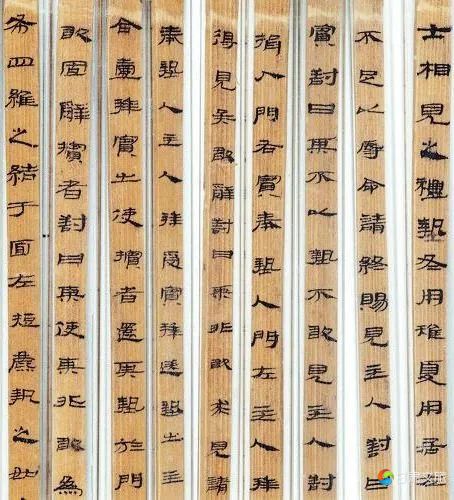 士相見之禮摯冬用雉夏用居
不足以辱命請終賜見主人對曰
賓對曰某不以摯不敢見主人對
揖入門右賓奉摯入門左主人拜
得見矣敢辭對曰某非敢求見請
奉摯入主人拜受賓拜送摯出主
合壹拜賓出使擯者還其摯於門
敢固辭擯者對曰某使某非敢爲
布四維之結于面左麋執之